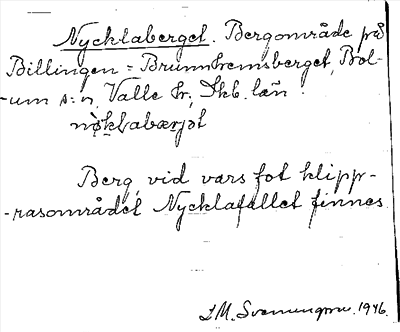 Nycklaberget. Bergområde på
Billingen = Brunnhemsberget, Bol-
-um s:n, Valle hr, Skb. län.
nøklabærjət
Berg, vid vars fot klipp-
-rasområdet Nycklafallet finnes.
1946.